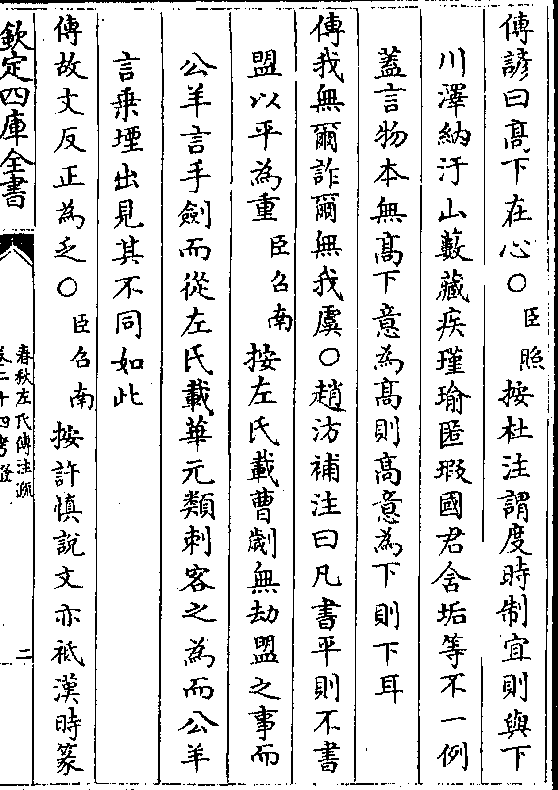 傳諺曰髙下在心〇臣照按杜注謂度時制宜則與下
川澤納汙山藪藏疾瑾瑜匿瑕國君含垢等不一例
蓋言物本無髙下意為髙則髙意為下則下耳
傳我無爾詐爾無我虞〇趙汸補注曰凡書平則不書
盟以平為重臣召南按左氏載曹劌無劫盟之事而
公羊言手劍而從左氏載華元類刺客之為而公羊
言乗堙出見其不同如此
傳故文反正為乏〇臣召南按許慎說文亦祗漢時篆
欽定四庫全書
春秋左氏傳注疏
卷二十四考證
二